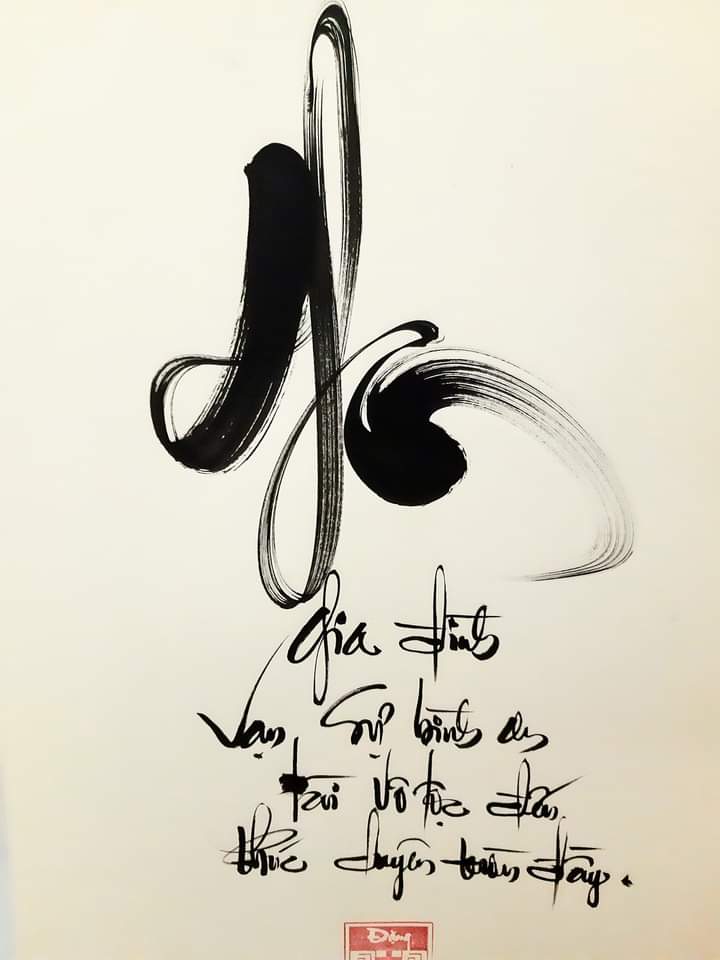 Gia đình
Vạn sự bình an
tài vô tục đến
phúc duyên tròn đầy.